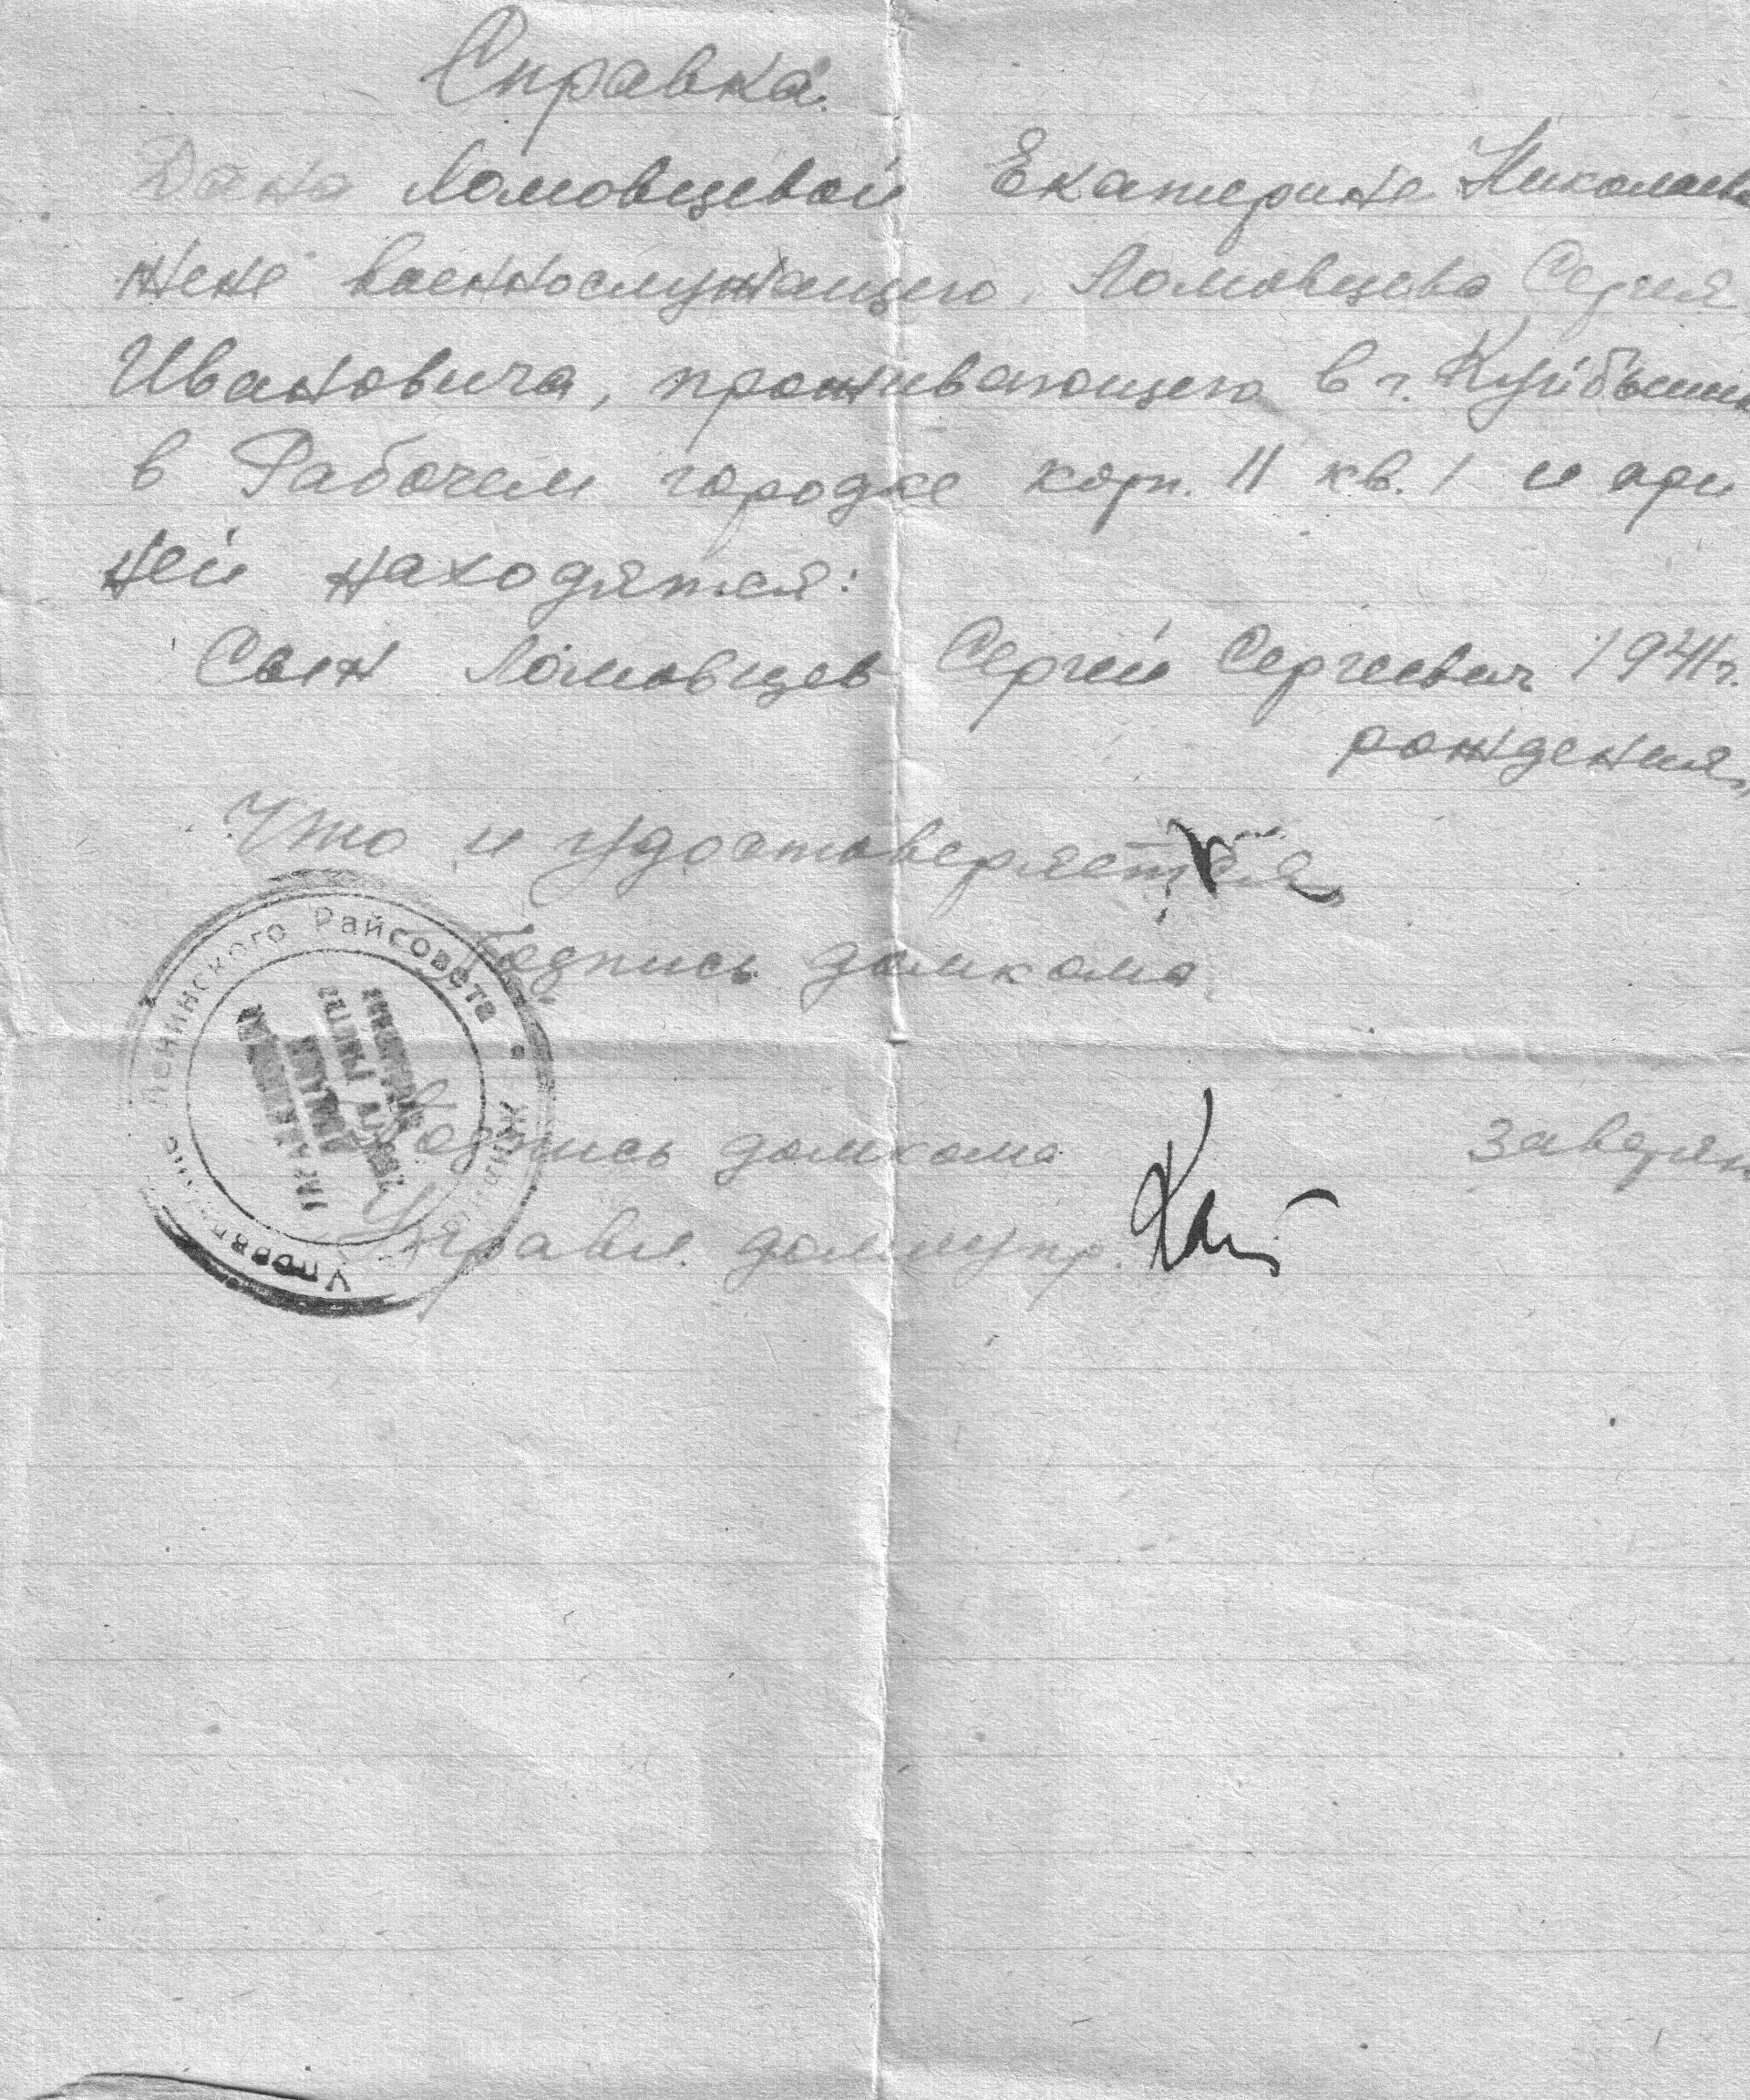 Справка.
Дана Ломовцевой Екатерине Николаевн
жене военнослужащего, Ломовцева Сергея
Ивановича, проживающего в г. Куйбышев
в Рабочем городке корп. 11 кв. 1 и при
ней находятся:
Сын Ломовцев Сергей Сергеевич 1941 г.
рождения,
Что и удостоверяется,
Подпись домкома
Подпись домкома заверяю
Управл. домоупр.
Ленинского Райсовета